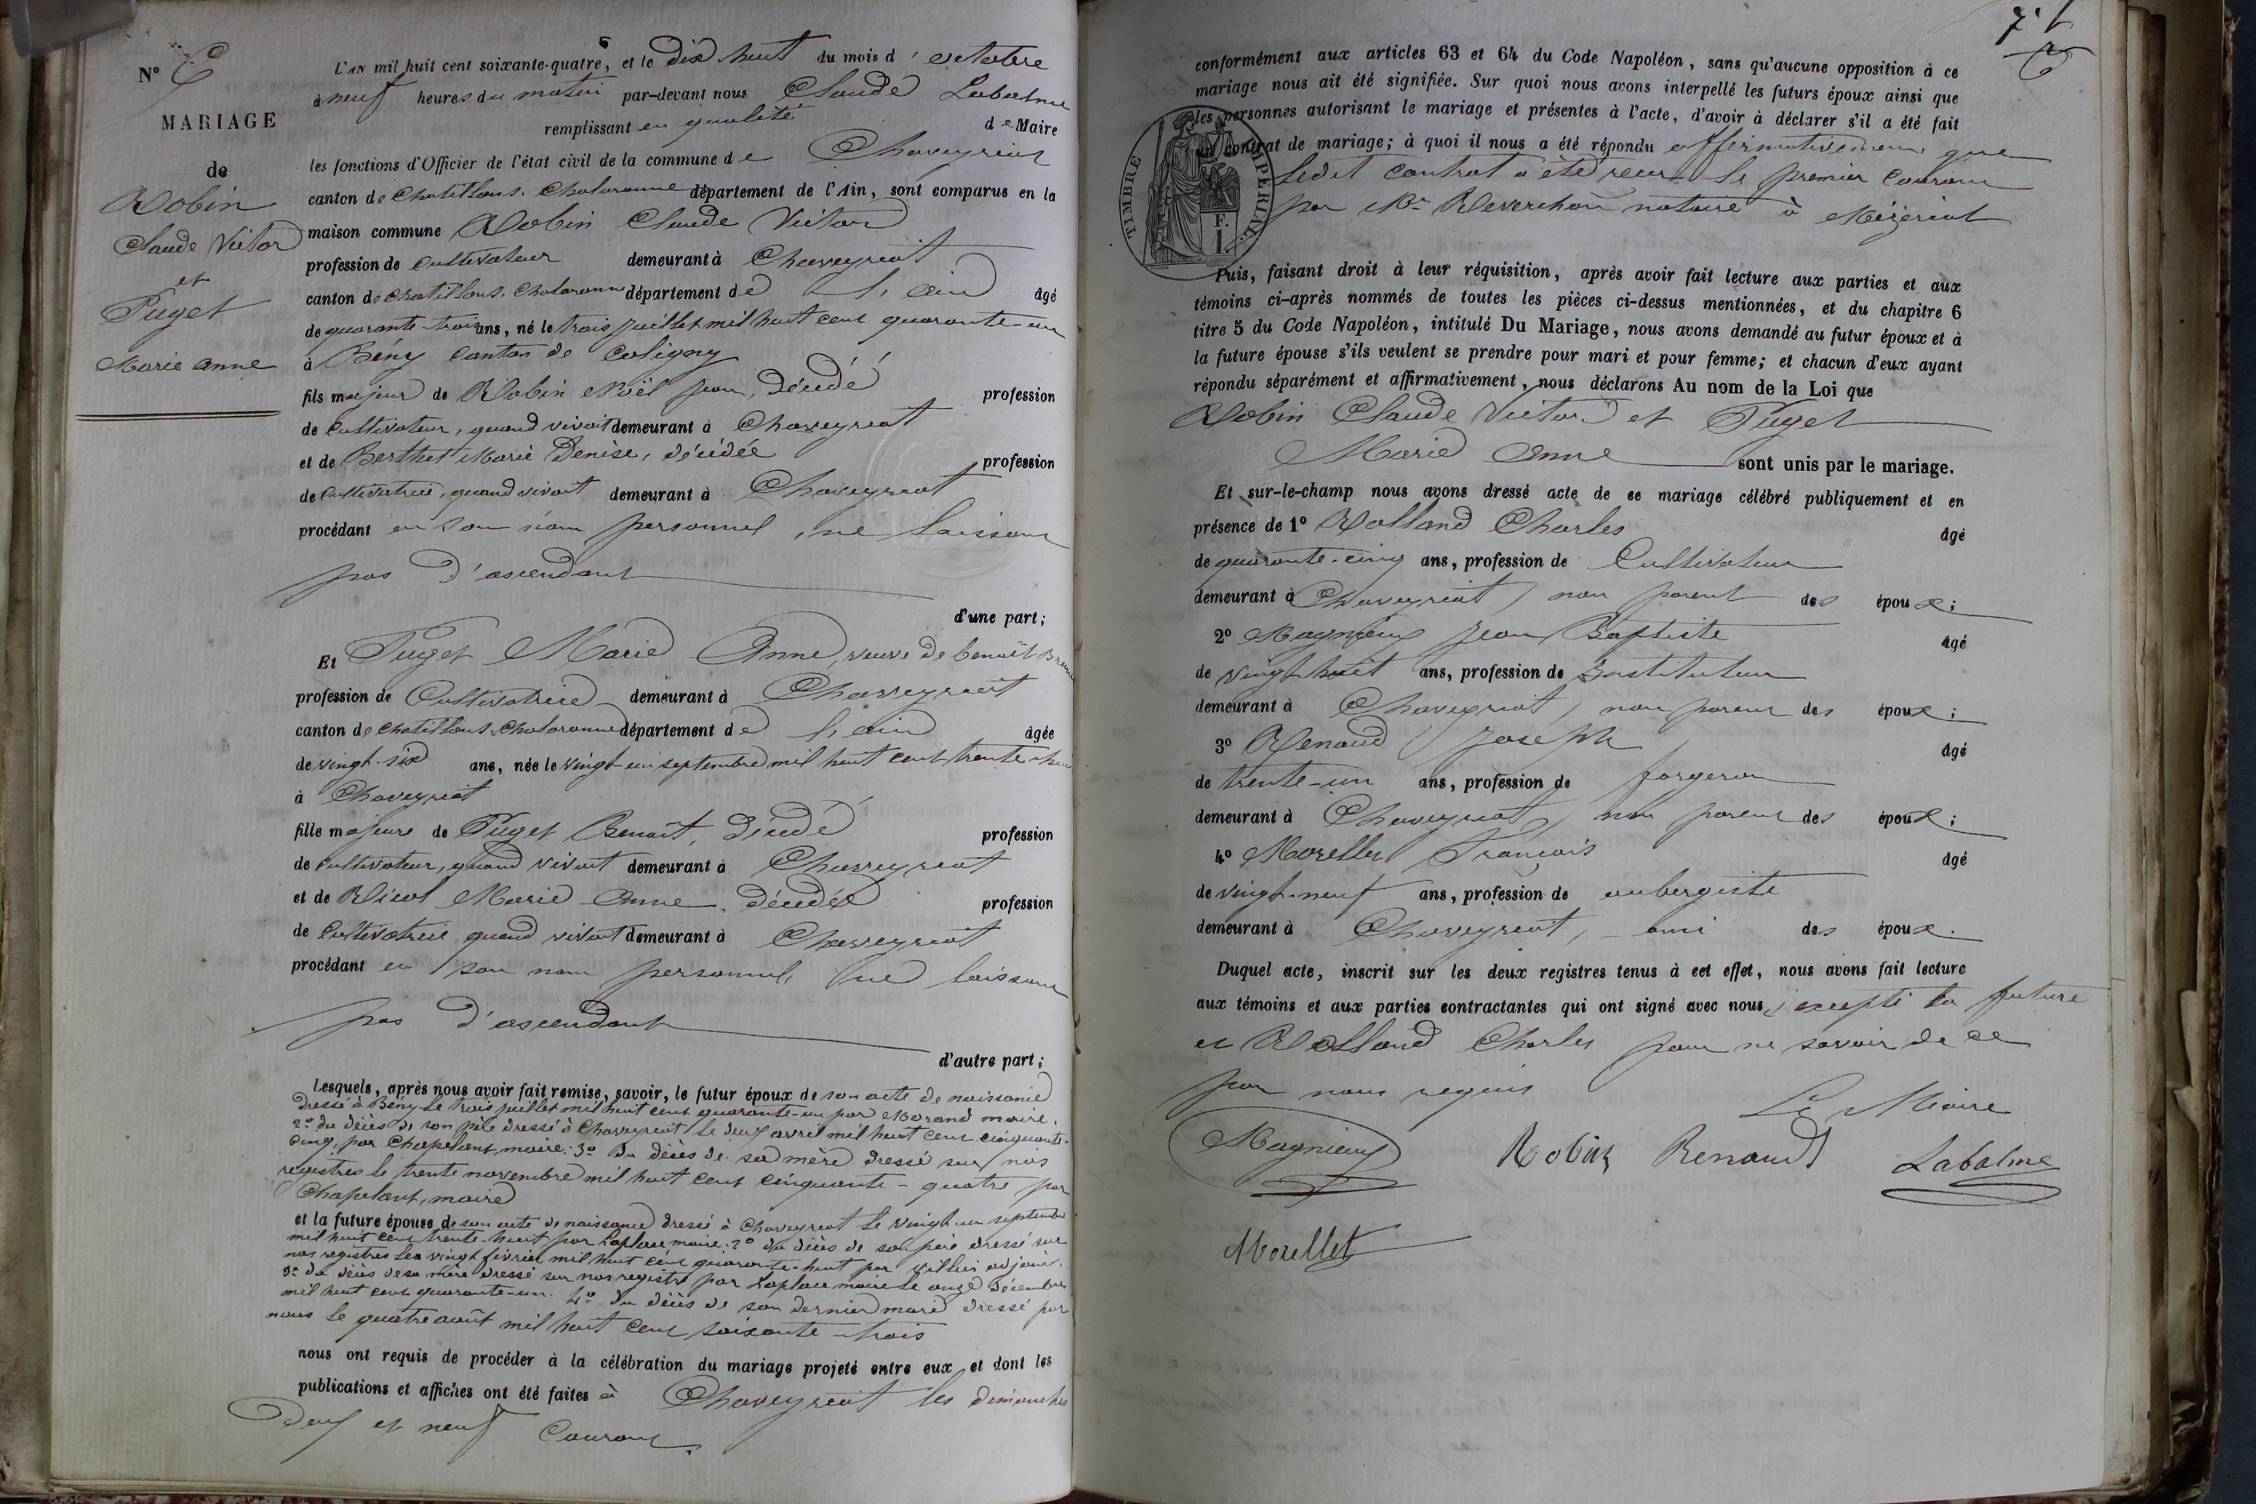 N° 6
MARIAGE
de
Robin
Claude Victor
et
Puget
Marie Anne
L'AN mil huit cent soixante-quatre, et le dix huit du mois d'octobre
à neuf heures du matin par-devant nous Claude Labalme
remplissant en qualité de Maire
les fonctions d'Officier de l'état civil de la commune de Chaveyriat
canton de Chatillon s. Chalaronne département de l'Ain, sont comparus en la
maison commune Robin Claude Victor
profession de cultivateur demeurant à Chaveyriat
canton de Chatillon s. Chalaronne département de l'ain âgé
de quarante-trois ans, né le trois juillet mil huit cent quarante-un
à Bény canton de Coligny
fils majeur de Robin Noël jean, décédé profession
de cultivateur, quand vivait demeurant à Chaveyriat
et de Berthet Marie Denise, décédée profession
de cultivatrice, quand vivait demeurant à Chaveyriat
procédant en son nom personnel, ne laissant
pas d'ascendant
d'une part;
Et Puget Marie Anne, veuve de benoît
profession de Cultivatrice demeurant à Chaveyriat
canton de Chatillon s. Chalaronne département de l'ain âgée
de vingt-six ans, née le vingt-un septembre mil huit cent trente-huit
à Chaveyriat
fille majeure de Puget Benoît, décédé profession
de cultivateur, quand vivait demeurant à Chaveyriat
et de Marie Anne, décédée profession
de Cultivatrice quand vivait demeurant à Chaveyriat
procédant en son nom personnel, ne laissant
pas d'ascendant
d'autre part;
Lesquels, après nous avoir fait remise, savoir, le futur époux de son acte de naissance
dressé à Bény le trois juillet mil huit cent quarante-un par Morand maire.
2° du décès de son père dressé à Chaveyriat le deux avril mil huit cent cinquante-
cinq, par Chapelant, maire. 3° du décès de sa mère dressé sur nos
registres le trente novembre mil huit cent cinquante-quatre par
Chapelant, maire
et la future épouse de son acte de naissance dressé à Chaveyriat le vingt-un septembre
mil huit cent trente-huit par Laplace maire. 2° du décès de son père dressé sur
nos registres les vingt février mil huit cent quarante-huit par adjoint.
3° du décès de sa mère dressé sur nos registre par Laplace maire le onze décembre
mil huit cent quarante-un. 4° du décès de son dernier mari dressé par
nous le quatre août mil huit cent soixante-trois
nous ont requis de procéder à la célébration du mariage projeté entre eux et dont les
publications et affiches ont été faites à Chaveyriat les dimanches
deux et neuf Courant.
7
conformément aux articles 63 et 64 du Code Napoléon, sans qu'aucune opposition à ce
mariage nous ait été signifiée. Sur quoi nous avons interpellé les futurs époux ainsi que
les personnes autorisant le mariage et présentes à l'acte, d'avoir à déclarer s'il a été fait
un contrat de mariage; à quoi il nous a été répondu affirmativement que
ledit contrat a été recu le premier courant
par Me Reverchon notaire à Mézériat
TIMBRE IMPÉRIAL
F.
1.
Puis, faisant droit à leur réquisition, après avoir fait lecture aux parties et aux
témoins ci-après nommés de toutes les pièces ci-dessus mentionnées, et du chapitre 6
titre 5 du Code Napoléon, intitulé Du Mariage, nous avons demandé au futur époux et à
la future épouse s'ils veulent se prendre pour mari et pour femme; et chacun d'eux ayant
répondu séparément et affirmativement, nous déclarons Au nom de la Loi que
Robin Claude Victor et Puget
Marie Anne sont unis par le mariage.
Et sur-le-champ nous avons dressé acte de ce mariage célébré publiquement et en
présence de 1° Rolland Charles âgé
de quarante-cinq ans, profession de Cultivateur
demeurant à Chaveyriat, non parent des époux;
2° Magnieux Jean Baptiste âgé
de vingt-huit ans, profession de Instituteur
demeurant à Chaveyriat, non parent des époux;
3° Renaud Joseph âgé
de trente-un ans, profession de forgeron
demeurant à Chaveyriat, non parent des époux;
4° Morellet François âgé
de vingt-neuf ans, profession de aubergiste
demeurant à Chaveyriat, ami des époux.
Duquel acte, inscrit sur les deux registres tenus à cet effet, nous avons fait lecture
aux témoins et aux parties contractantes qui ont signé avec nous, excepté la future
et Rolland Charles pour ne savoir de ce
par nous requis
Le Maire
Magnieux Robin Renaud Labalme
Morellet